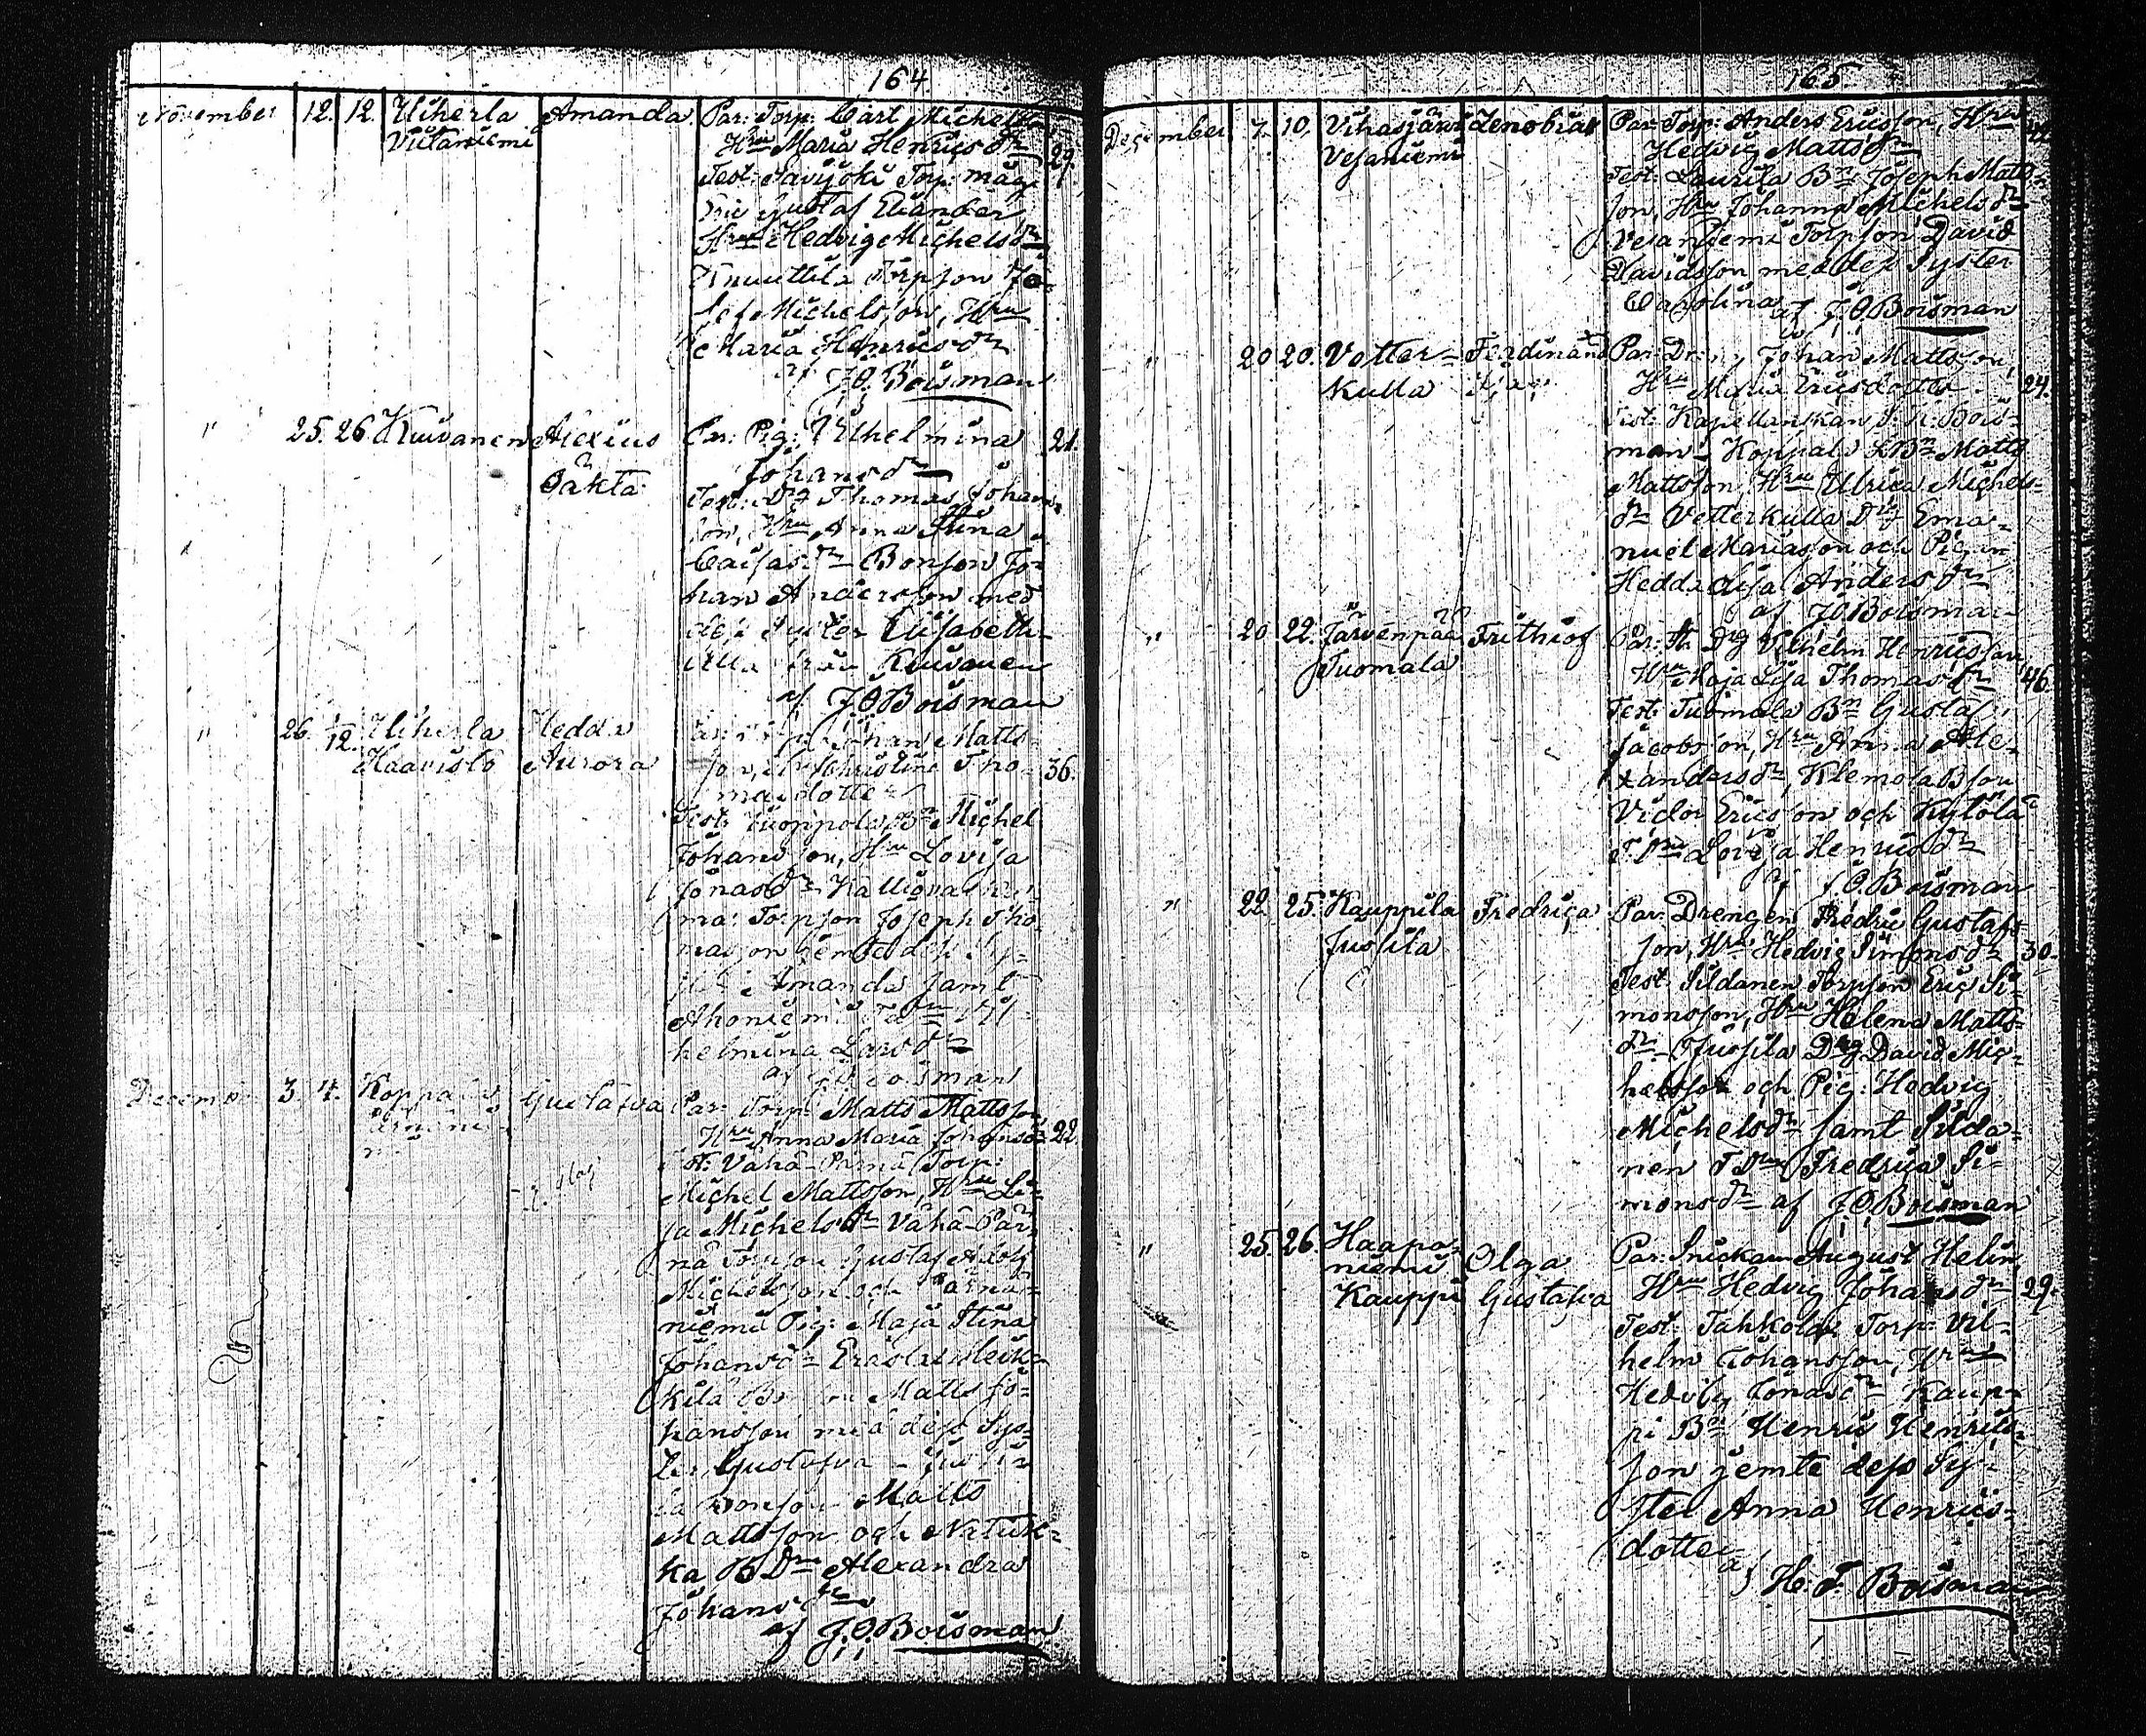 164
November 12. 12. Uiherla Amanda Par: Torp: Carl Michelsson
Viitaniemi Hru Maria Henricsdr 29.
Test: Savijoki Torp: måg
Eric Gustaf Elianber
Hru Hedvig Michelsdr
Knuuttila Torpson Jo-
sef Michelsson, Hru
Maria Henricsdr
af J.O. Boisman
" 25. 26 Kuivanen Alexius Par: Pig: Vilhelmina 21.
Johansdr
oäkta Test: Drg Thomas Johans-
son, Hru Anna Stina
Caisasdr Bonson Jo-
han Andersson med
dess Syster Elisabeth
Ulla från Kuivanen
af J.O Boisman
" 26. 1/12. Uiherla Hedda Johan Matts-
Haavisto Aurora son, Hru Christina Tho- 36.
masdotter
Test: Tuoppola Bn Michel
Johansson, Hru Lovisa
Jonasdr Kalliovahen-
ma: Torpson Joseph Tho-
masson jemte dess Sys-
ter Amanda samt
Ahoniemi Vil-
helmina Larsdr
af J.O Boisman
December 3. 4. Koppala Gustafva Par: Torp: Matts Mattsson
Pärnänie- Hru Anna Maria Johansdr 22.
mi Test: Vähä-Pärnä Torp:
Michel Mattsson, Hru Li-
sa Michelsdr Vähä-Pär-
nä Torpson Gustaf Adolf
Michelsson och Pärnä-
niemi Pig: Maja Stina
Johansdr Eräslahti Leik-
kilä Bonson Matts Jo-
hansson med dess Sys-
ter Gustafva
la Bonson Matts
Mattsson och
ka B Dru Alexandra
Johansdr
af J.O. Boisman
165
December 7. 10. Vihasjärvi Zenobia Par: Torp: Anders Ericsson, Hru
Vesaniemi Hedvig Mattsdr
Test: Laurila Bn Joseph Matts-
son, Hru Johanna Michelsdr
Vesaniemi Torpson David
Davidsson med dess Syster
Carolina af J.O Boisman
" 20 20. Vetter- Ferdinand Par: Dreng Johan Mattsson,
kulla Hru Maria Ericsdotter 24.
Test: Kapellanskan Bois-
man, Koppala Bn Matts
Mattsson, Hru Ulrica Michels-
dr Vetterkulla Drg Ema-
nuel Mariasson och Pigan
Hedda Lisa Andersdr
af J.O Boisman
" 20 22. Järvenpää Frithiof Par: Drg Vilhelm Henricsson
Tuomala Hru Maja Lisa Thomasdr 46.
Test: Tuomala Bn Gustaf
Jacobsson, Hru Anna Ale-
xandersdr, Klemola Bson
Victor Ericsson och Kylölä
Lovisa Henricsdr
af J.O. Boisman
" 22. 25. Kauppila Fredrica Par: Drengen Fredric Gustafs-
Jussila son, Hru Hedvig Simonsdr 30.
Test: Sildanen Torpson Eric Si-
monsson, Hru Helena Matts-
dr Jussila Drg David Mic-
helsson och Pig: Hedvig
Michelsdr samt Silda-
nen T Dru Fredrica Si-
monsdr af J.O. Boisman
" 25. 26. Haapa- Olga Par: Snickaren August Helin,
niemi Gustafva Hru Hedvig Johansdr 29.
Kauppi Test: Tahkola Torp: Vil-
helm Johansson, Hru
Hedvig Jonasdr Kaup-
pi Bn Henric Henrics-
son jemte dess Sy-
ster Anna Henrics-
dotter
af H. F. Boisman